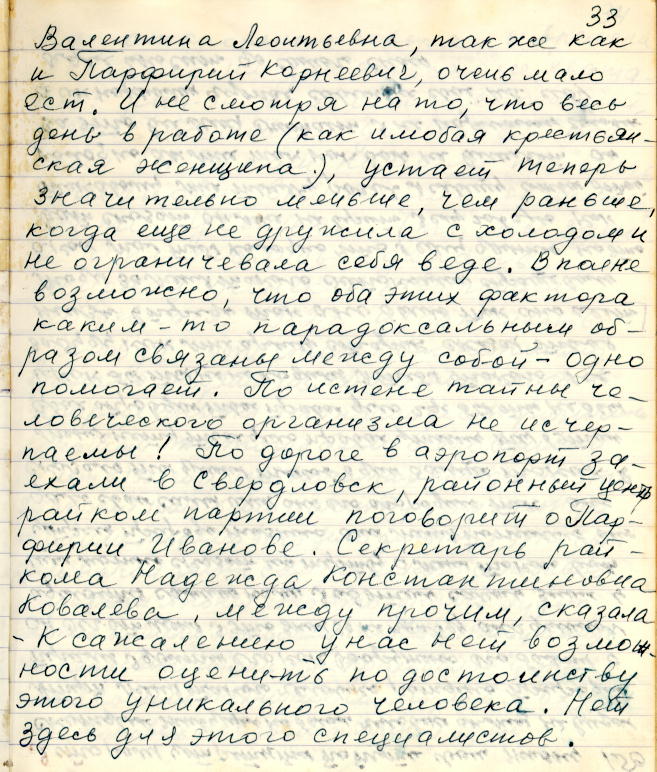 33
Валентина Леонтьевна, так же как
и Парфирий Корнеевич, очень мало
ест. И не смотря на то, что весь
день в работе (как и любая крестьян-
ская женщина.), устает теперь
значительно меньше, чем раньше,
когда еще не дружила с холодом и
не ограничевала себя в еде. Вполне
возможно, что оба этих фактора
каким-то парадоксальным об-
разом связаны между собой - одно
помогает. По истене тайны че-
ловеческого организма не исчер-
паемы! По дороге в аэропорт за-
ехали в Свердловск, районный центр
райком партии поговорить о Пар-
фирии Иванове. Секретарь рай-
кома Надежда Константиновна
Ковалева, между прочим, сказала
- К сажалению у нас нет возмож-
ности оценить по достоинству
этого уникального человека. Нет
здесь для этого специалистов.